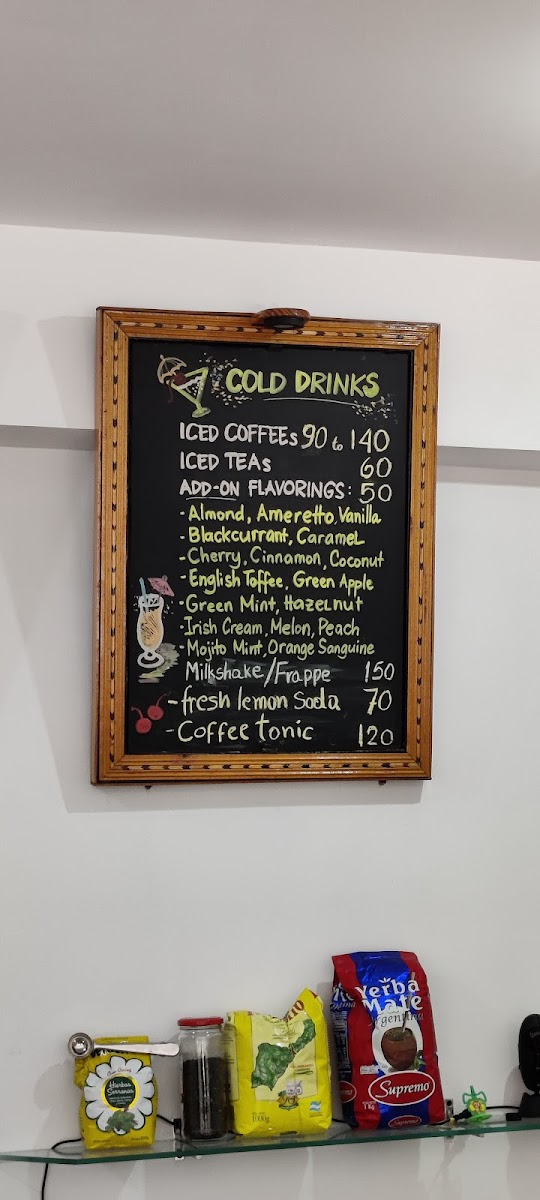 COLD DRINKS
ICED COFFEEs 90 to 140
ICED TEAs 60
ADD-ON FLAVORINGS: 50
- Almond, Ameretto, Vanilla
- Blackcurrant, Caramel
- Cherry, Cinnamon, Coconut
- English Toffee, Green Apple
- Green Mint, Hazelnut
- Irish Cream, Melon, Peach
- Mojito Mint, Orange Sanguine
Milkshake/Frappe 150
- fresh lemon Soda 70
- Coffee tonic 120
Yerba
Mate
Argentina
Supremo
1 Kg
Supremo
Hierbas
Serranas